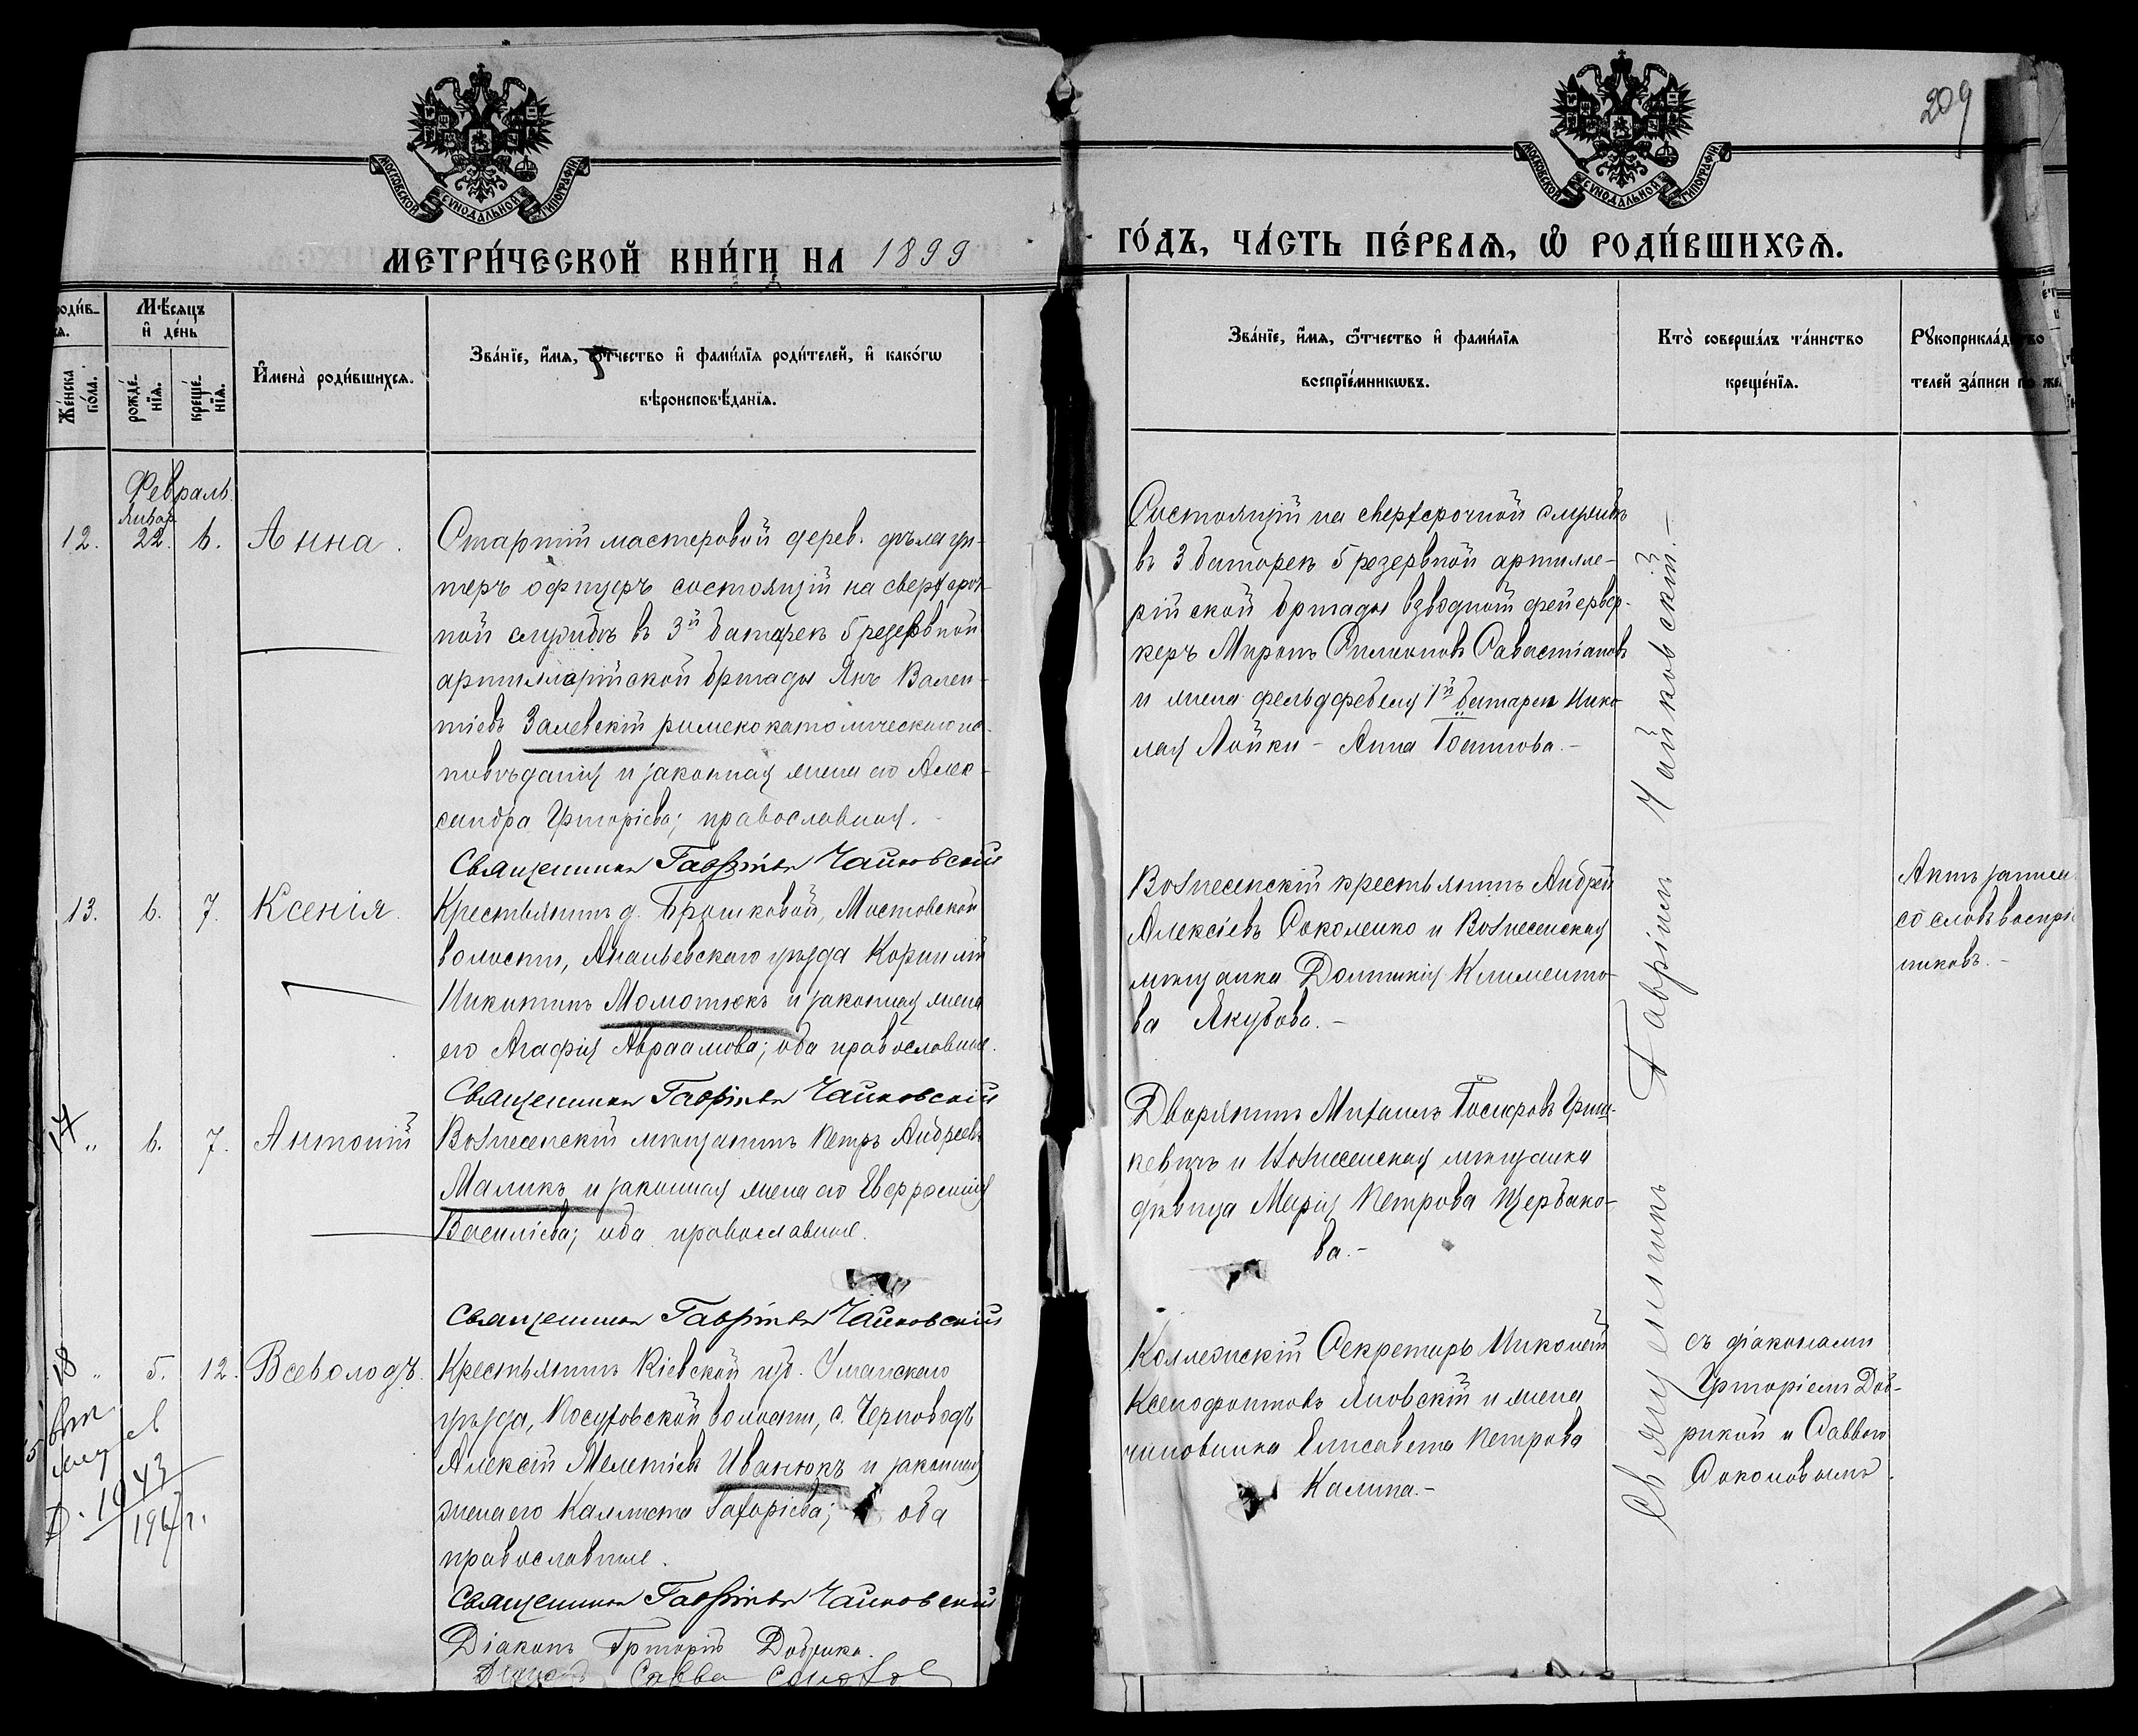 209
МОСКОВСКОЙ СУНОДАЛЬНОЙ ТИПОГРАФІИ
МОСКОВСКОЙ СУНОДАЛЬНОЙ ТИПОГРАФІИ
МЕТРИ́ЧЕСКОЙ КНИ́ГИ НА 1899
ГО́ДЪ, ЧА́СТЬ ПЕ́РВАѦ, Ѽ РОДИ́ВШИХСѦ.
роди́в-
ѧ.
Же́нска по́ла.
Мѣ́сѧцъ
и҆ де́нь
рожде́-
нїѧ.
креще́-
нїѧ.
И҆мена̀ роди́вшихсѧ.
Зва́нїе, и҆́мѧ, ѻ҆́тчество и҆ фами́лїѧ роди́телей, и҆ како́гѡ
вѣроисповѣ́данїѧ.
Зва́нїе, и҆́мѧ, ѻ҆́тчество и҆ фами́лїѧ
воспрїе́мникѡвъ.
Кто̀ соверша́лъ та́инство
креще́нїѧ.
Рꙋкоприкла́дство
телей за́писи по же
Февраль
Январ
12. 22. 6. Анна.
Старшій мастеровой дерев. дѣла ун-
теръ офицеръ состоящій на сверхсроч-
ной службѣ въ 3й батареѣ 5 резервной
артиллерійской бригады Янъ Вален-
тіевъ Залевскій римскокатолическаго ис-
повѣданія и законная жена его Алек-
сандра Григорієва; православная.
Священникъ Гавріилъ Чайковскій
Состоящій на сверхсрочной службѣ
въ 3 батареѣ 5 резервной артилле-
рійской бригады взводный фейервер-
керъ Миронъ Филиповъ Савастіановъ
и жена фельдфебеля 1й батареи Нико-
лая Лойки - Анна
13. 6. 7. Ксенія.
Крестьянинъ д. Брошковой, Мостовской
волости, Ананьевскаго уѣзда Корнилій
Никитинъ Момотюкъ и законная жена
его Агафія Авраамова; оба православные.
Священникъ Гавріилъ Чайковскій
Вознесенскій крестьянинъ Андрей
Алексіевъ Соколенко и Вознесенская
мѣщанка Домникія Клименто-
ва Якубова.-
Актъ записа
со словъ воспрі
никовъ.-
14 " 6. 7. Антоній
Вознесенскій мѣщанинъ Петръ Андреевъ
Маликъ и законная жена его Евфросинія
Василіева; оба православные.
Священникъ Гавріилъ Чайковскій
Дворянинъ Михаилъ Григ-
кевичъ и Вознесенская мѣщанка
дѣвица Марія Петрова Щербако-
ва.-
18 " 5. 12. Всеволодъ.
Крестьянинъ Кіевской губ. Уманскаго
уѣзда, Посуховской волости, с. Черноводъ
Алексій Мелетіевъ Иванюкъ и законная
жена его Каллиста Захаріева; оба
православные.
Священникъ Гавріилъ Чайковскій
Діаконъ Григорій Добрика.
Діаконъ Савва Соколов
Коллежскій Секретарь Николай
Ксенофонтовъ Яновскій и жена
чиновника Елисавета Петрова
Калина.-
Священникъ Гавріилъ Чайковскій.-
съ діаконами
Григоріемъ Доб-
рикой и Саввою
Соколовымъ.
1943
194 г.